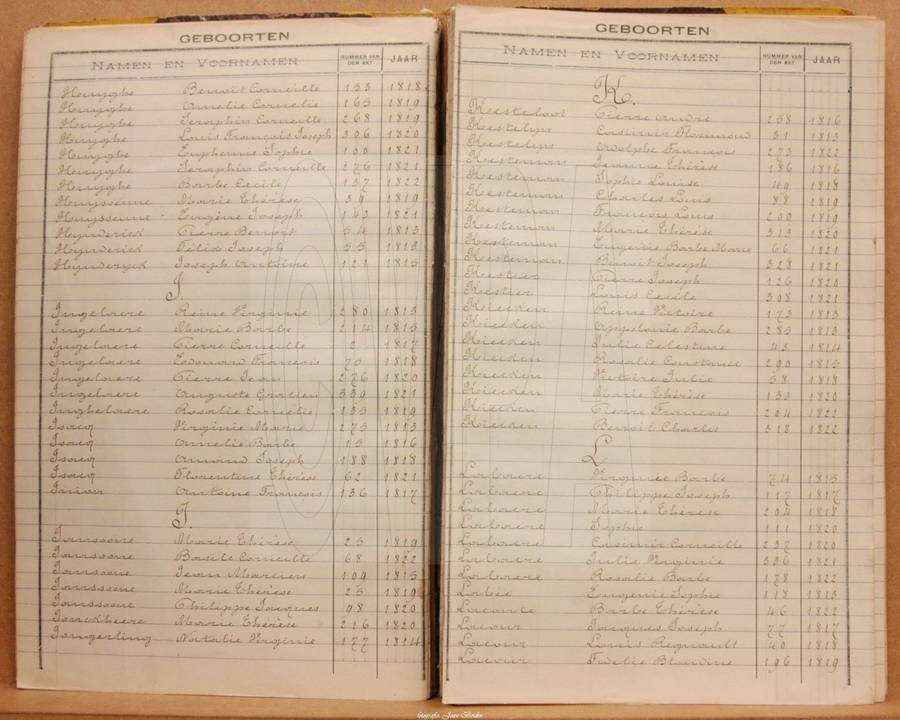 GEBOORTEN
NAMEN EN VOORNAMEN NUMMER VAN DEN AKT JAAR
Huyghe Benoit Corneille 153 1818
Huyghe Amelie Cornelie 165 1819
Huyghe Seraphin Corneille 268 1819
Huyghe Louis François Joseph 306 1820
Huyghe Euphemie Sophie 100 1821
Huyghe Seraphin Corneille 276 1821
Huyghe Barbe Cecile 137 1822
Huysseune Marie Thérèse 39 1819
Huysseune Eugène Joseph 140 1821
Hynderick Pierre Benoit 54 1813
Hynderick Félix Joseph 55 1819
Hynderyck Joseph Antoine 121 1815
I.
Ingelaere Reine Virginie 280 1813
Ingelaere Marie Barbe 214 1815
Ingelaere Pierre Corneille 2 1817
Ingelaere Edouard François 75 1818
Ingelaere Pierre Jean 276 1820
Ingelaere Auguste Gratien 339 1821
Inghelaere Rosalie Cornelie 135 1819
Isacq Virginie Marie 275 1813
Isacq Amelie Barbe 15 1816
Isacq Amand Joseph 188 1818
Isacq Florentine Thérèse 62 1821
Antoine François 136 1817
J.
Janssone Marie Thérèse 25 1819
Janssone Basile Corneille 68 1822
Janssone Jean Marcien 109 1815
Janssone Marie Thérèse 25 1819
Janssone Philippe Jacques 98 1820
Jonckheere Marie Thérèse 216 1820
Jongerling Natalie Virginie 177 1814
GEBOORTEN
NAMEN EN VOORNAMEN NUMMER VAN DEN AKT JAAR
K.
Kesteloot Pierre André 258 1816
Kestelyn Casimir Florimond 31 1813
Kestelyn Adolphe François 273 1822
Kesteman Jeanne Thérèse 186 1816
Kesteman Sophie Louise 49 1818
Kesteman Charles Louis 88 1819
Kesteman François Louis 200 1819
Kesteman Marie Thérèse 313 1820
Kesteman Eugénie Barbe Marie 66 1821
Kesteman Benoit Joseph 328 1821
Kestier Pierre Joseph 126 1820
Kestier Louis Cecile 308 1821
Kiecken Reine Victoire 173 1813
Kiecken Appolonie Barbe 285 1813
Kiecken Julie Celestine 45 1814
Kiecken Rosalie Constance 290 1815
Kiecken Victoire Julie 58 1818
Kiecken Marie Thérèse 139 1820
Kiecken Pierre François 204 1822
Kiecken Benoit Charles 318 1822
L
Labaere Virginie Barbe 74 1815
Labaere Philippe Joseph 117 1817
Labaere Marie Thérèse 204 1818
Labaere Sophie 111 1820
Labaere Casimir Corneille 237 1820
Labaere Julie Virginie 336 1821
Labaere Rosalie Barbe 128 1822
Labée Eugenie Sophie 118 1813
Lacante Barbe Thérèse 46 1822
Lacour Jacques Joseph 77 1817
Lacour Louis Regnault 40 1818
Lacour Fidélie Blandine 196 1819